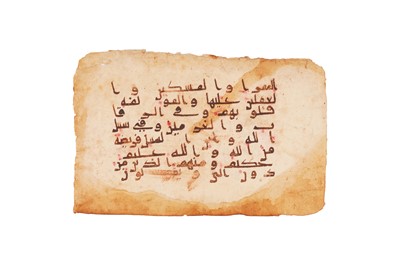 للفقرا و المسكين و ا
لعملين عليها و المولفه
قلوبهم و في الرقا
ب و الغرمين و في سبيل
الله و ابن السبيل فريضه
من الله و الله عليم
حكيم و منهم الذين يو
ذون النبي و يقولون